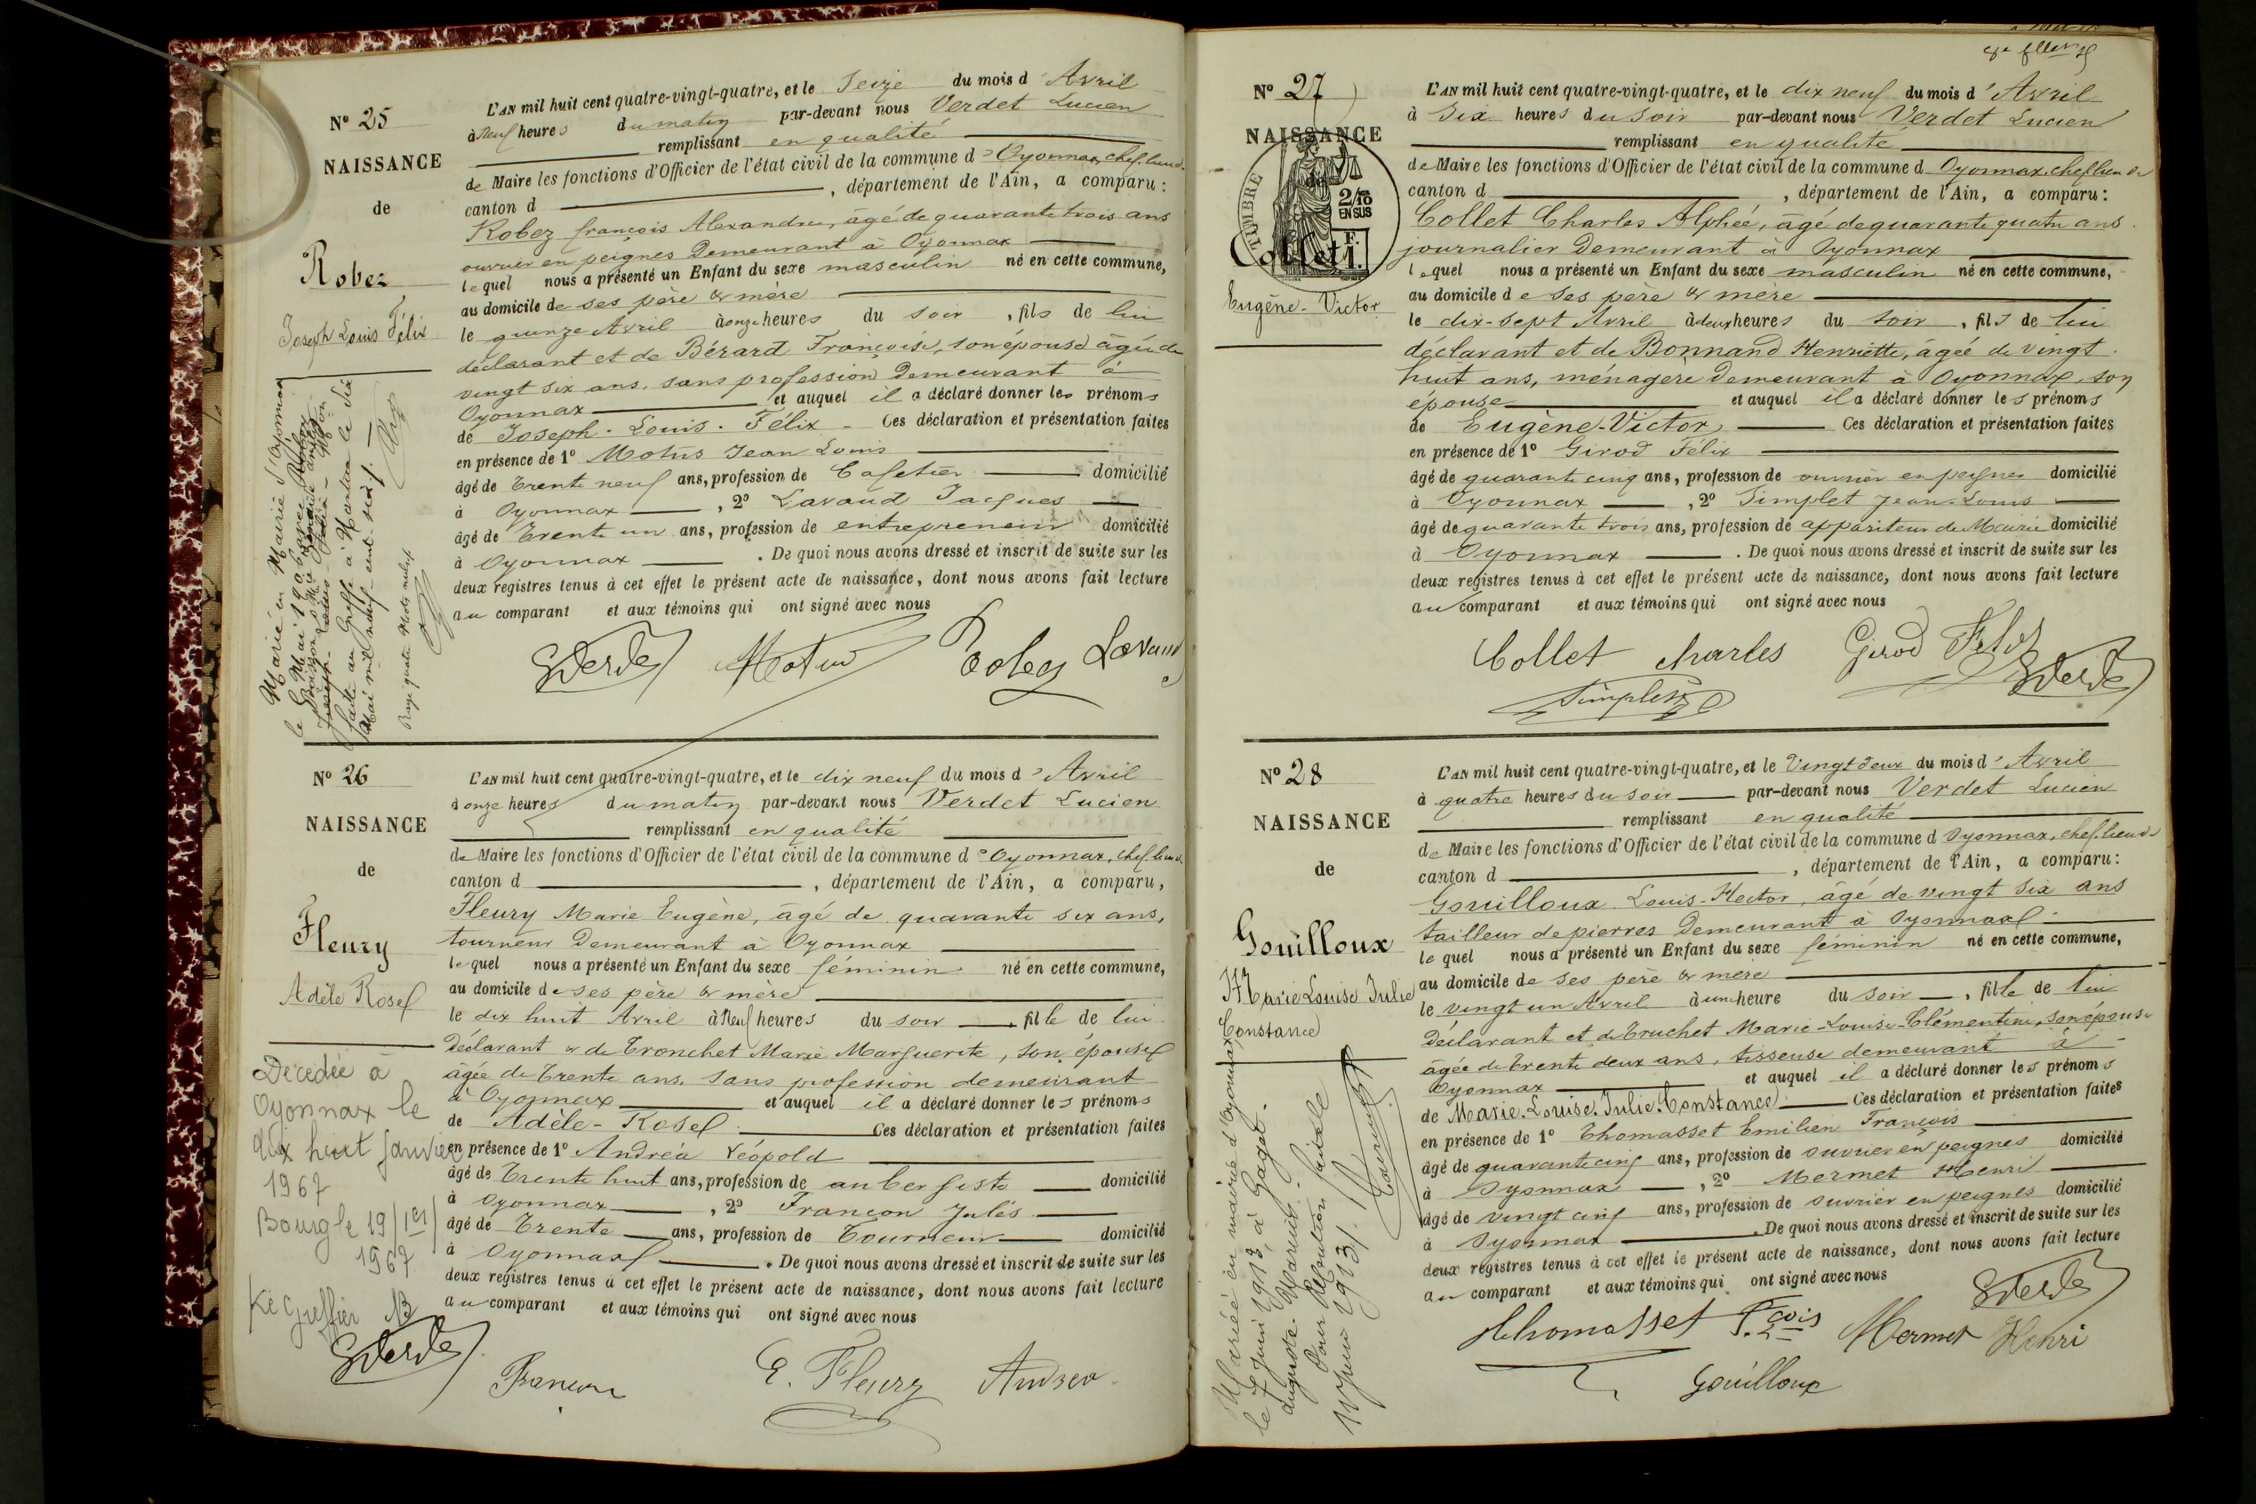 N° 25
NAISSANCE
de
Robez
Joseph Louis Félix
L'AN mil huit cent quatre-vingt-quatre, et le Seize du mois d'Avril
à Neuf heures du matin par-devant nous Verdet Lucien
remplissant en qualité
de Maire les fonctions d'Officier de l'état civil de la commune d'Oyonnax, chef lieu de
canton d , département de l'Ain, a comparu :
Robez françois Alexandre, âgé de quarante trois ans
ouvrier en peignes Demeurant à Oyonnax
lequel nous a présenté un Enfant du sexe masculin né en cette commune,
au domicile de ses père & mère
le quinze Avril à onze heures du soir , fils de lui
déclarant et de Bérard Françoise, son épouse âgée de
vingt six ans, sans profession Demeurant à
Oyonnax et auquel il a déclaré donner les prénoms
de Joseph - Louis - Félix - Ces déclaration et présentation faites
en présence de 1° Motus Jean Louis
âgé de trente neuf ans, profession de Cafetier domicilié
à Oyonnax , 2° Lavaud Jacques
âgé de Trente un ans, profession de entrepreneur domicilié
à Oyonnax . De quoi nous avons dressé et inscrit de suite sur les
deux registres tenus à cet effet le présent acte de naissance, dont nous avons fait lecture
au comparant et aux témoins qui ont signé avec nous
Verdet Robez Lavaud
Marié en Mairie d'Oyonnax
le Mai 190
faite au Greffe à Nantua le dix
Mai mil neuf cent six
N° 26
NAISSANCE
de
Fleury
Adèle Rosel
L'AN mil huit cent quatre-vingt-quatre, et le dix neuf du mois d'Avril
à onze heures du matin par-devant nous Verdet Lucien
remplissant en qualité
de Maire les fonctions d'Officier de l'état civil de la commune d'Oyonnax, chef lieu de
canton d , département de l'Ain, a comparu,
Fleury Marie Eugène, âgé de quarante six ans,
tourneur Demeurant à Oyonnax
lequel nous a présenté un Enfant du sexe féminin né en cette commune,
au domicile de ses père & mère
le dix huit Avril à Neuf heures du soir , fille de lui
Déclarant & de Tronchet Marie Marguerite, son épouse
âgée de Trente ans, sans profession demeurant
à Oyonnax et auquel il a déclaré donner les prénoms
de Adèle - Rosel Ces déclaration et présentation faites
en présence de 1° Andréa Léopold
âgé de Trente huit ans, profession de aubergiste domicilié
à Oyonnax , 2° Françon Jules
âgé de Trente ans, profession de Tourneur domicilié
à Oyonnax . De quoi nous avons dressé et inscrit de suite sur les
deux registres tenus à cet effet le présent acte de naissance, dont nous avons fait lecture
au comparant et aux témoins qui ont signé avec nous
Verdet Françon E. Fleury Andréa
Décedée à
Oyonnax le
dix huit Janvier
1967
Bourg le 19/1er/
1967
Le Greffier
N° 27
NAISSANCE
de
TIMBRE
2/10
EN SUS
Collet
Eugène - Victor
L'AN mil huit cent quatre-vingt-quatre, et le dix neuf du mois d'Avril
à Six heures du soir par-devant nous Verdet Lucien
remplissant en qualité
de Maire les fonctions d'Officier de l'état civil de la commune d'Oyonnax, chef lieu de
canton d , département de l'Ain, a comparu :
Collet Charles Alphée, âgé de quarante quatre ans
journalier Demeurant à Oyonnax
lequel nous a présenté un Enfant du sexe masculin né en cette commune,
au domicile de ses père & mère
le dix-sept Avril à deux heures du soir , fils de lui
déclarant et de Bonnand Henriette, âgée de vingt
huit ans, ménagère Demeurant à Oyonnax, son
épouse et auquel il a déclaré donner les prénoms
de Eugène-Victor Ces déclaration et présentation faites
en présence de 1° Girod Félix
âgé de quarante cinq ans, profession de ouvrier en peignes domicilié
à Oyonnax , 2° Simplet Jean-Louis
âgé de quarante trois ans, profession de appariteur de Mairie domicilié
à Oyonnax . De quoi nous avons dressé et inscrit de suite sur les
deux registres tenus à cet effet le présent acte de naissance, dont nous avons fait lecture
au comparant et aux témoins qui ont signé avec nous
Collet Charles Girod Félix
Simplet Verdet
N° 28
NAISSANCE
de
Gouilloux
Marie Louise Julie
Constance
L'AN mil huit cent quatre-vingt-quatre, et le Vingt deux du mois d'Avril
à quatre heures du soir par-devant nous Verdet Lucien
remplissant en qualité
de Maire les fonctions d'Officier de l'état civil de la commune d'Oyonnax, chef lieu de
canton d , département de l'Ain, a comparu :
Gouilloux Louis-Hector, âgé de vingt six ans
tailleur de pierres Demeurant à Oyonnax
lequel nous a présenté un Enfant du sexe féminin né en cette commune,
au domicile de ses père & mère
le vingt un Avril à une heure du soir , fille de lui
Déclarant et de Truchet Marie-Louise-Clémentine, son épouse
âgée de trente deux ans, tisseuse demeurant à
Oyonnax et auquel il a déclaré donner les prénoms
de Marie-Louise-Julie-Constance Ces déclaration et présentation faites
en présence de 1° Thomasset Emilien François
âgé de quarante cinq ans, profession de ouvrier en peignes domicilié
à Oyonnax , 2° Mermet Henri
âgé de vingt cinq ans, profession de ouvrier en peignes domicilié
à Oyonnax . De quoi nous avons dressé et inscrit de suite sur les
deux registres tenus à cet effet le présent acte de naissance, dont nous avons fait lecture
au comparant et aux témoins qui ont signé avec nous
Verdet
Thomasset Fcois Mermet Henri
Gouilloux
Mariée en mairie d'Oyonnax
le 7 Juin 1913, à Gaget
Auguste - Marius.
Pour Mention faite le
11 Juin 1913